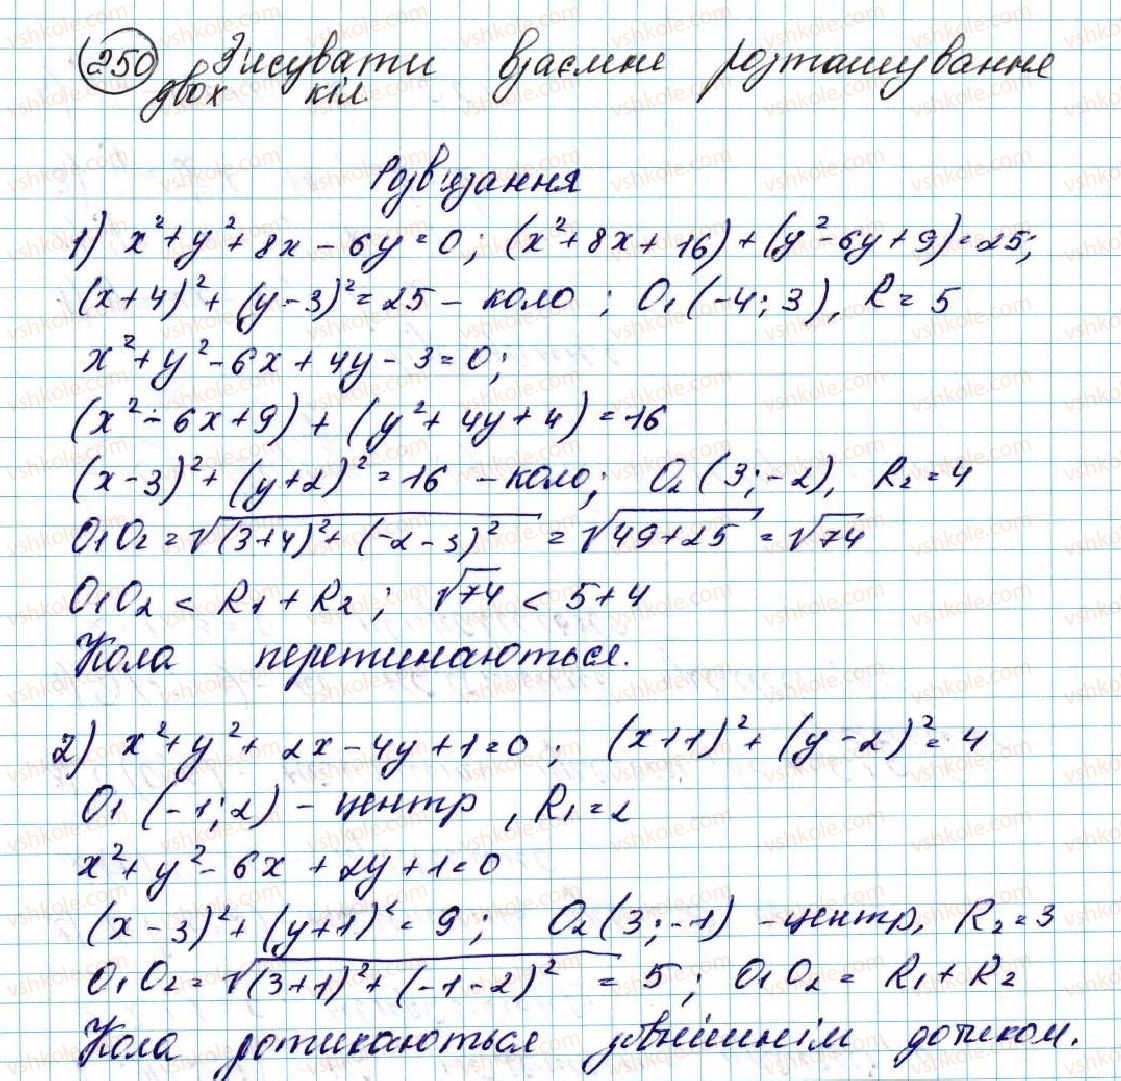 250 З'ясувати взаємне розташування
двох кіл.
Розв'язання
1) x²+y²+8x-6y=0; (x²+8x+16)+(y²-6y+9)=25;
(x+4)²+(y-3)²=25 - коло; O₁(-4;3), R=5
x²+y²-6x+4y-3=0;
(x²-6x+9)+(y²+4y+4)=16
(x-3)²+(y+2)²=16 - коло; O₂(3;-2), R₂=4
O₁O₂=√((3+4)²+(-2-3)²) = √(49+25) = √74
O₁O₂ < R₁+R₂; √74 < 5+4
Кола перетинаються.
2) x²+y²+2x-4y+1=0; (x+1)²+(y-2)²=4
O₁(-1;2) - центр, R₁=2
x²+y²-6x+2y+1=0
(x-3)²+(y+1)²=9; O₂(3;-1) - центр, R₂=3
O₁O₂=√((3+1)²+(-1-2)²) = 5; O₁O₂ = R₁+R₂
Кола дотикаються зовнішнім дотиком.